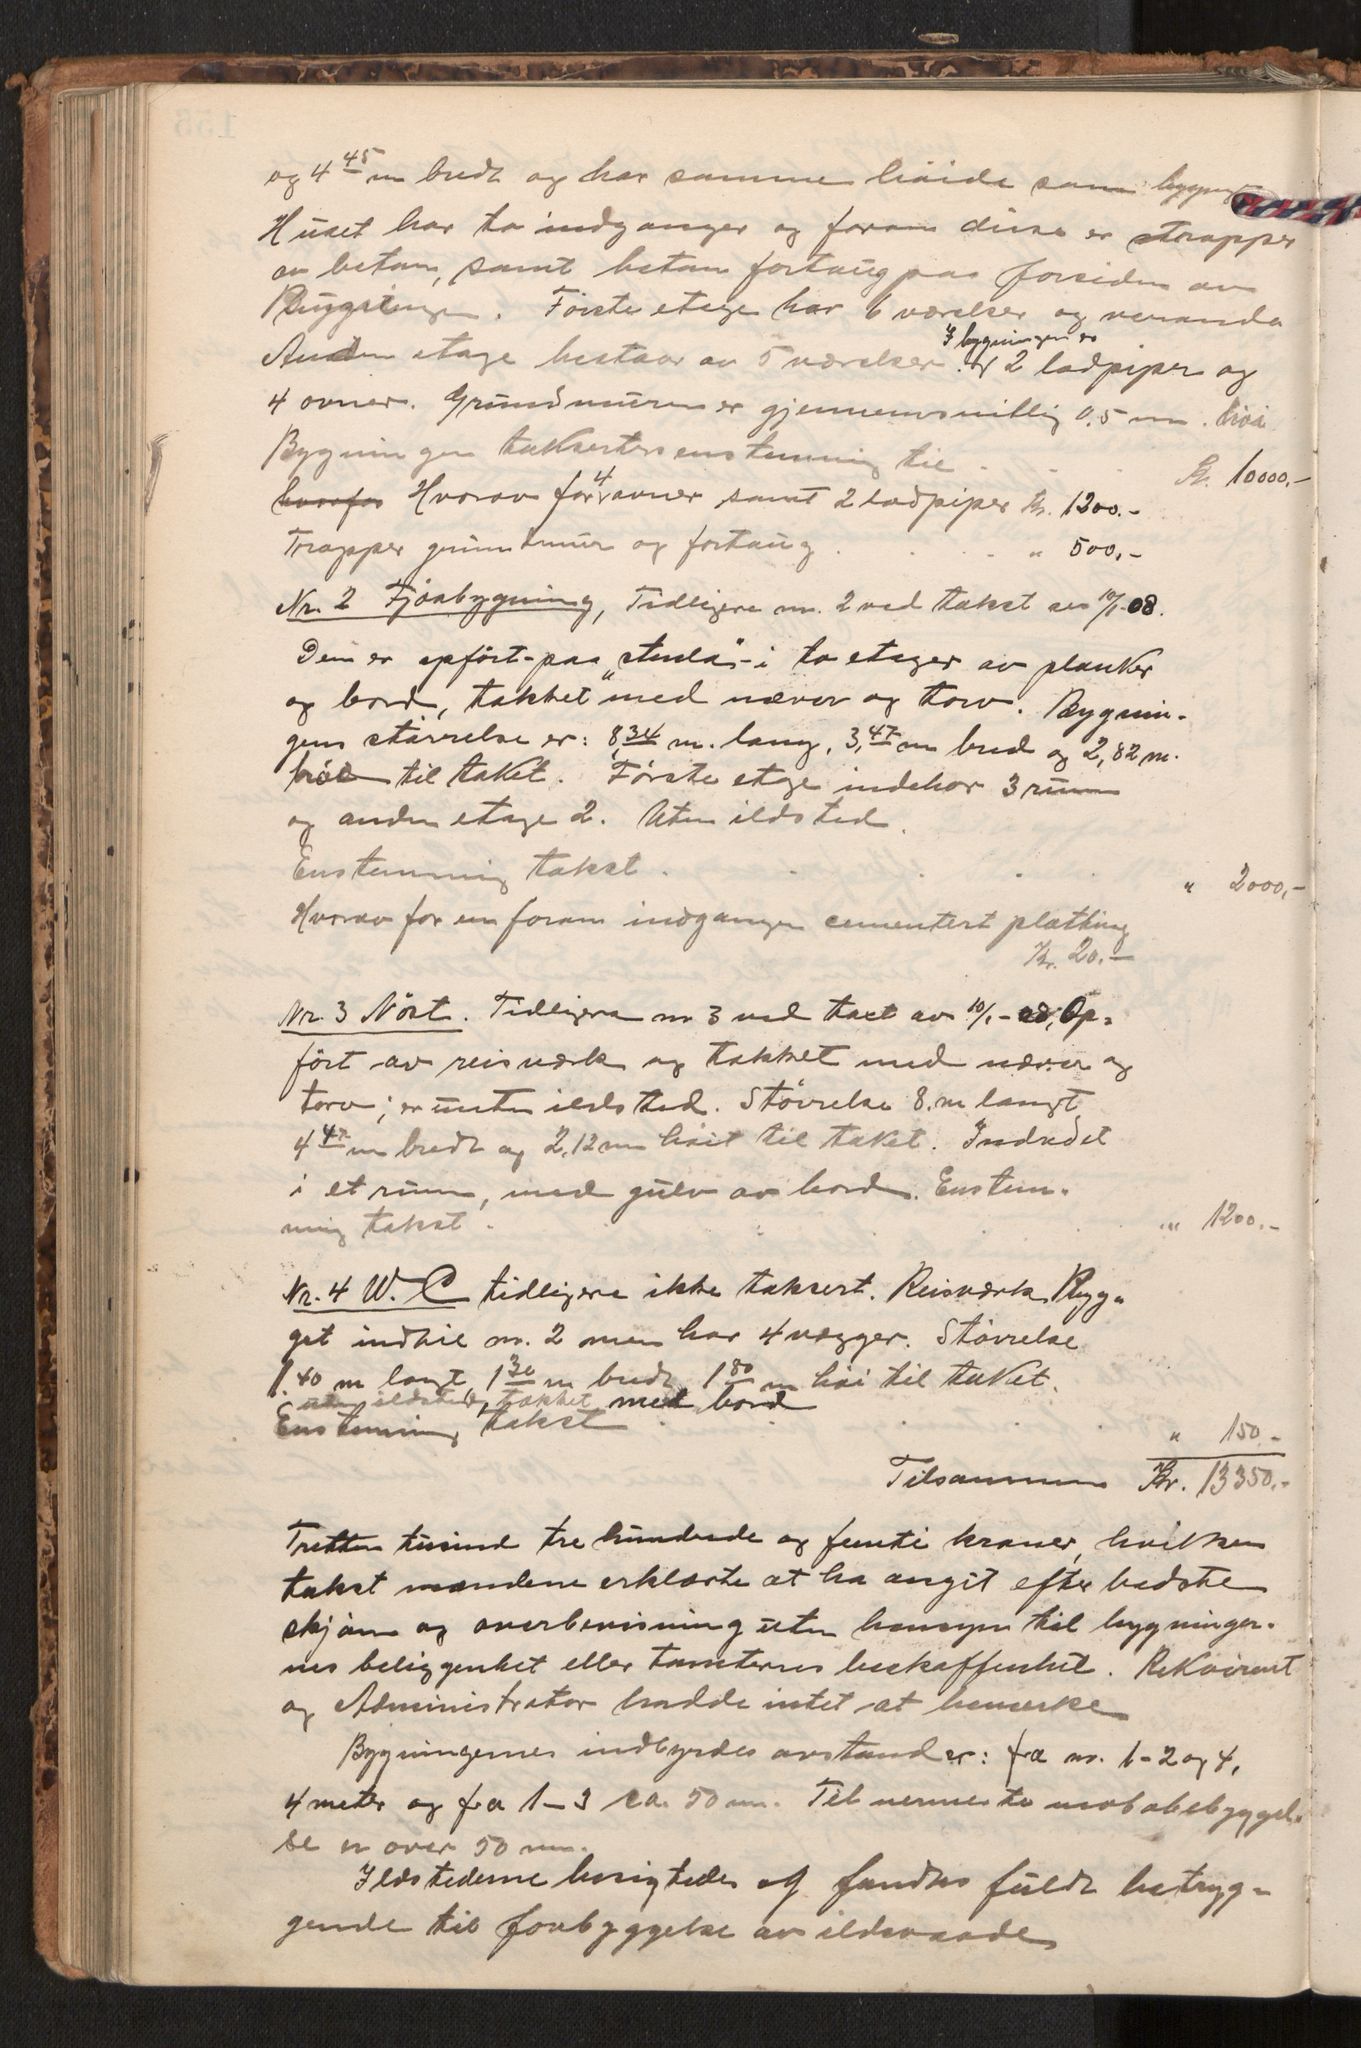 og 4 45 m bredt og har samme höide som bygning
Huset har to indganger og foran disse er trapper
av betong, samt betong fortaug paa forsiden av
Bygningen. Første etage har 6 værelser og veranda
Anden etage bestaar av 5 værelser. I bygningen er 2 ladpiper og
4 ovner. Grundmuren er gjennemsnittlig 0,5 m. höi
Bygningen taksertes enstemmig til . . . Kr. 10000,-
hvorfor Hvorav for 4 ovner samt 2 ladpiper Kr. 1200.-
Trapper grundmur og fortaug . . . " 500,-
Nr. 2 Fjösbygning, Tidligere nr. 2 ved takst av 10/1-08.
Den er opfört paa "stula" i to etager av planker
og bord, takket med næver og torv. Bygnin-
gens störrelse er: 8,34 m. lang, 3,47 m bred og 2,82 m.
höi til taket. Første etage indehar 3 rum
og anden etage 2. Uten ildsted.
Enstemmig takst . . . . " 2000,-
Hvorav for en foran indgangen cementert platting
Kr. 20.-
Nr. 3 Nöst. Tidligere nr 3 ved taxt av 10/1-08, Op-
fört av reisværk og takket med næver og
torv; er uten ildsted. Störrelse 8. m langt,
4 47 m bredt og 2,12 m höit til taket. Inndedet
i et rum, med gulv av bord. Enstem-
mig takst . . . . " 1200.-
Nr. 4 W.C tidligere ikke taksert. Reisværk Byg-
get indtil nr. 2 men har 4 vægger. Störrelse
1.40 m langt, 1 30 m bredt, 1 80 m höi til taket.
uten ildsted, takket med bord
Enstemmig takst . . . . " 150.-
Tilsammen Kr. 13350.-
Tretten tusind tre hundrede og femti kroner, hvilken
takst mændene erklærte at ha angit efter bedste
skjön og overbevisning uten hensyn til bygninger-
nes beliggenhet eller tomternes beskaffenhet. Rekvirent
og Administrator hadde intet at bemerke
Bygningernes indbyrdes avstand er: fra nr. 1-2 og 4,
4 meter og fra 1-3 ca. 50 m. Til nermeste nabobebyggel-
se er over 50 m.
Ildstederne besigtedes og fandtes fuldt betryg-
gende til forebyggelse av ildsvaade